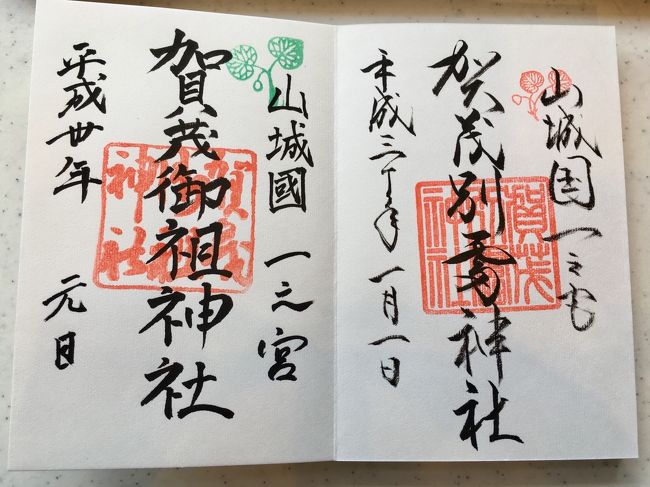 山城国一之宮
賀茂別雷神社
平成三十年一月一日
賀茂別雷神社
山城國一之宮
賀茂御祖神社
平成卅年元日
賀茂御祖神社